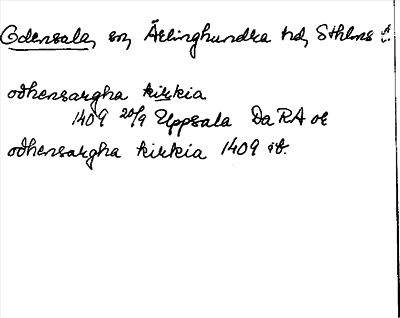 Odensala, sn, Ärlinghundra hd, Sthlms l.
odhensargha kirkia
1409 20/9 Uppsala Da RA or
odhensargha kirkia 1409 ib.